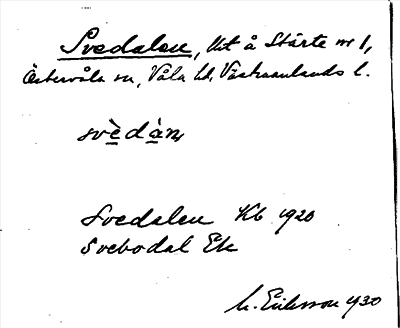 Svedalen, lht å Stärte nr 1,
Östervåla sn, Våla hd, Västmanlands l.
svèdàn,
Svedalen Kb 1920
Svebodal Ek
M. Eriksson 1930